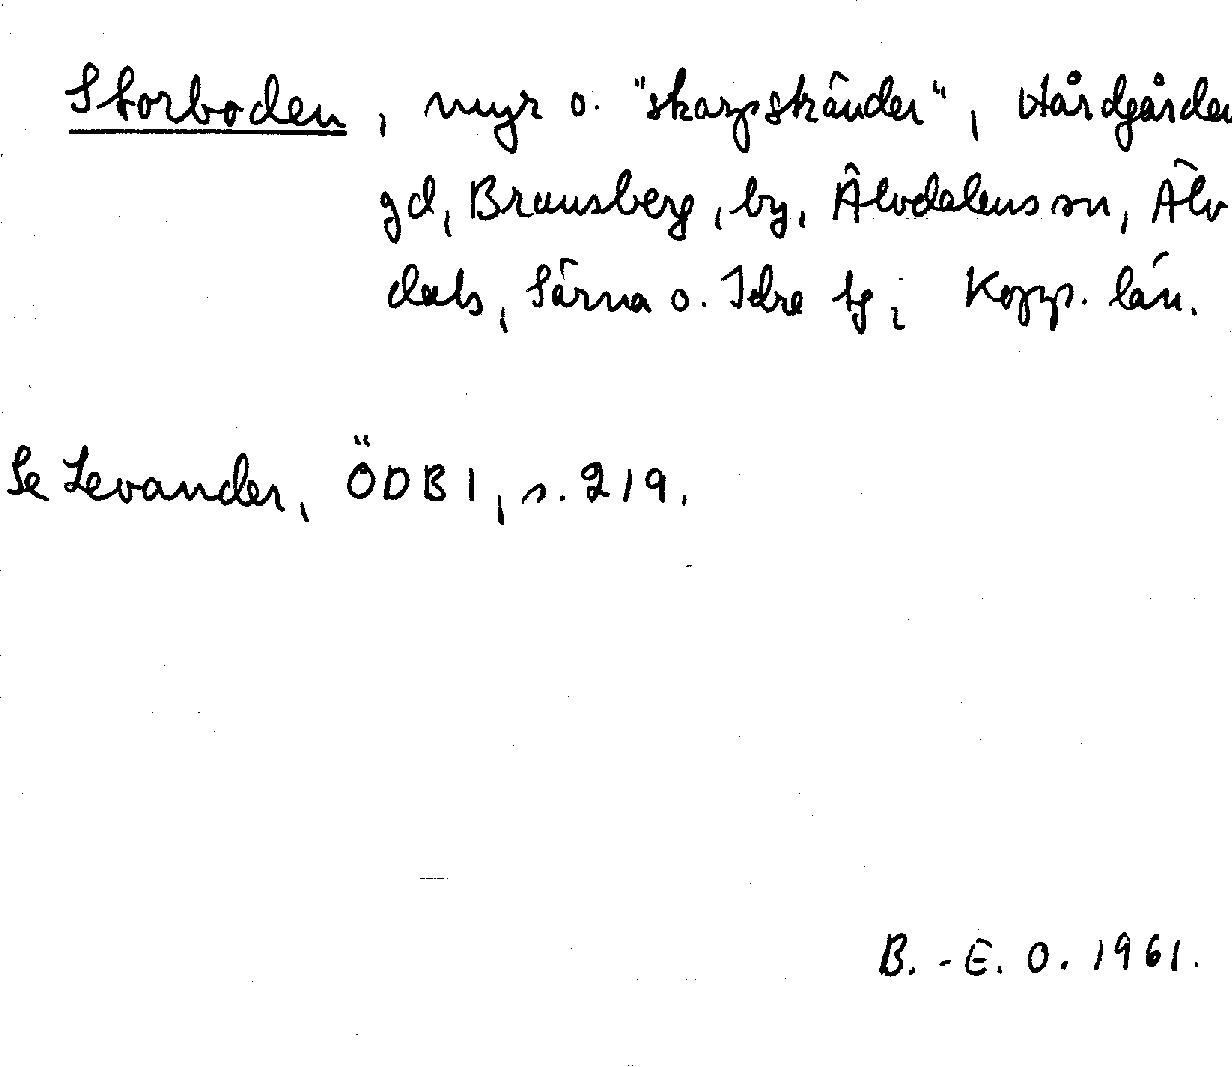 Storboden, myr o. "skarpsränder", Hårdgården
gd, Brunsberg, by, Älvdalens sn, Älv
dals, Särna o. Idre tg; Kopp. län.
Se Levander, ÖDB I, s. 219.
B.-E. O. 1961.